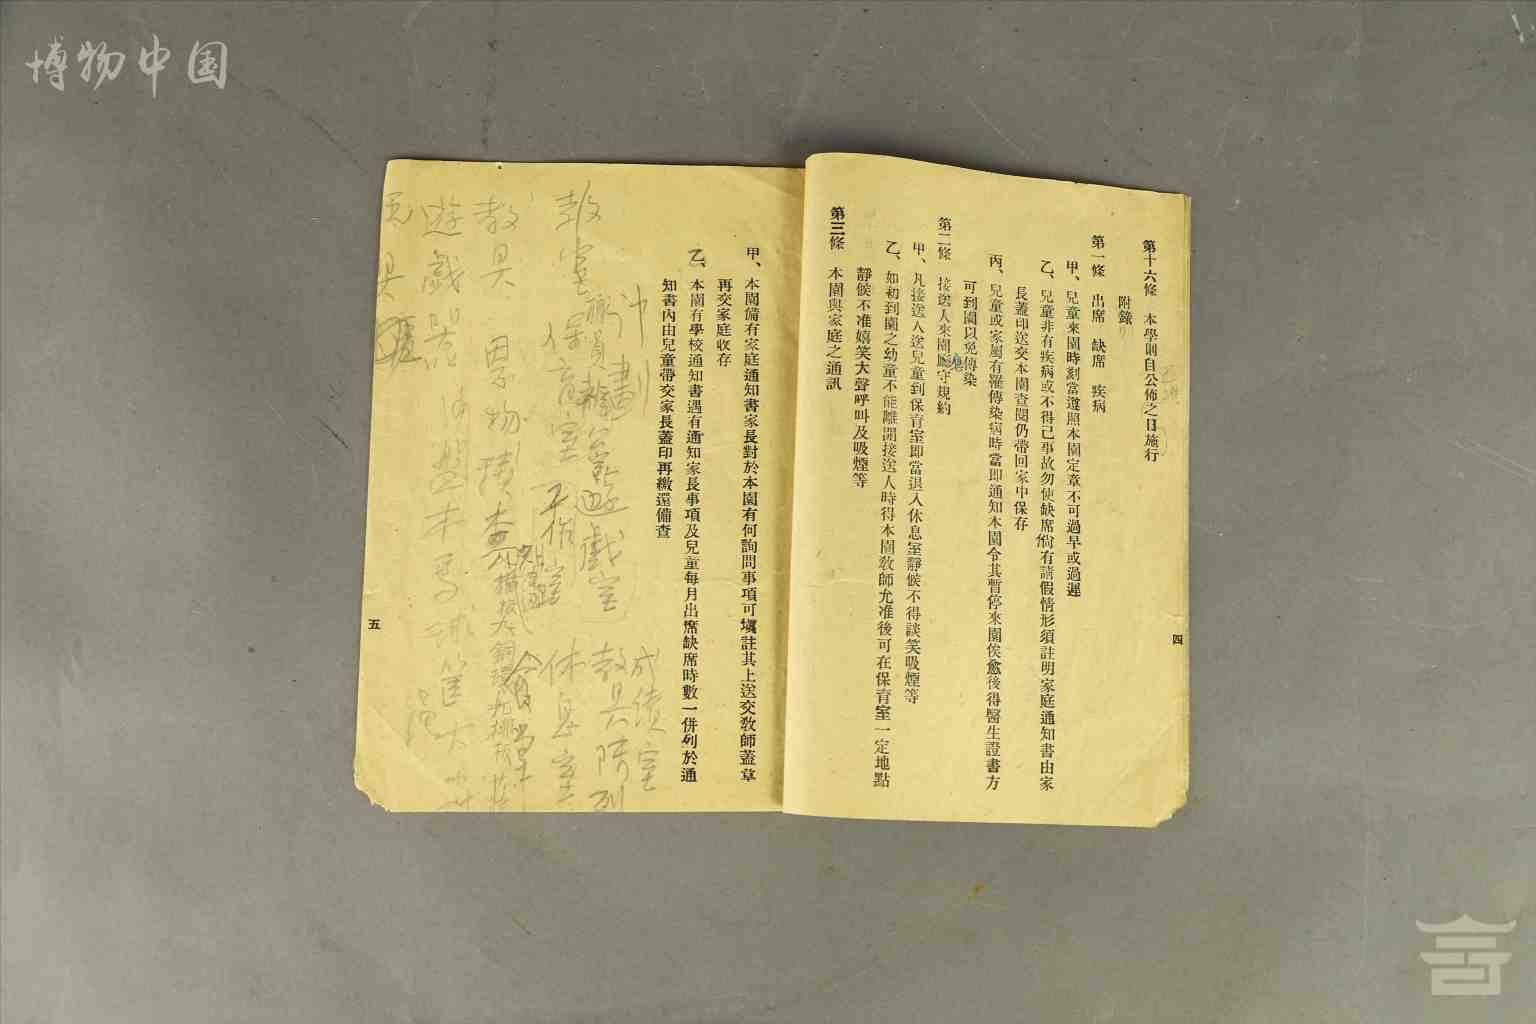 博物中国
第十六條　本學則自公佈之日施行
附錄
第一條　出席　缺席　疾病
甲、兒童來園時刻當遵照本園定章不可過早或過遲
乙、兒童非有疾病或不得已事故勿使缺席尙有請假情形須註明家庭通知書由家
長蓋印送交本園查閱仍帶回家中保存
丙、兒童或家屬有罹傳染病時當即通知本園令其暫停來園俟愈後得醫生證書方
可到園以免傳染
第二條　接送人來園應守規約
甲、凡接送人送兒童到保育室即當退入休息室靜候不得談笑吸煙等
乙、如初到園之幼童不能離開接送人時得本園敎師允准後可在保育室一定地點
靜候不准嬉笑大聲呼叫及吸煙等
第三條　本園與家庭之通訊
四
甲、本園備有家庭通知書家長對於本園有何詢問事項可塡註其上送交敎師蓋章
再交家庭收存
乙、本園有學校通知書遇有通知家長事項及兒童每月出席缺席時數一併列於通
知書內由兒童帶交家長蓋印再繳還備查
計劃
成績室
教具陳列
教室
保育室
工作室
休息室
遊戲室
教具
恩物
積木
遊戲
五